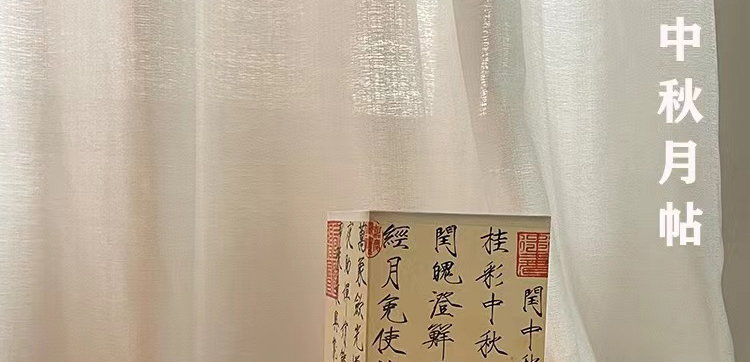 中秋月帖
閏中秋
桂彩中秋
閏魄澄鮮
經月免使
萬象斂光